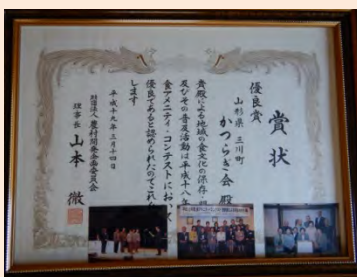 賞状
優良賞
山形県 三川町
かつらぎ会 殿
貴殿による地域の食文化の保存・
及びその普及活動は平成十八年
食アメニティ・コンテストにおいて
優良であると認められたのでこれを
します
平成十九年三月十四日
財団法人 農村開発企画委員会
理事長 山本 徹